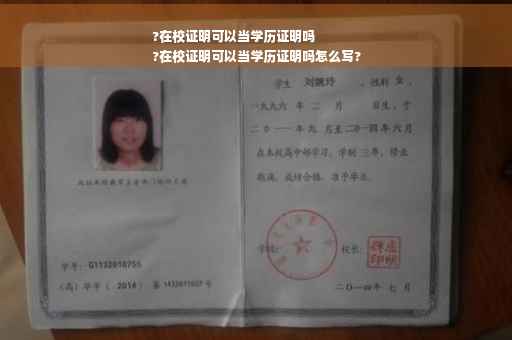 ?在校证明可以当学历证明吗
?在校证明可以当学历证明吗怎么写?
学生 刘婉玲 ，性别 女 ，
一九九六 年 二 月 日生，于
二〇一一年九 月至二〇一四年六月
在本校高中部学习，学制 三年，修业
期满，成绩合格，准予毕业。
学号： G1132010755
(高) 毕字 ( 2014 ) 第 1432011027 号
学校：
校长：
二〇一四年 七 月